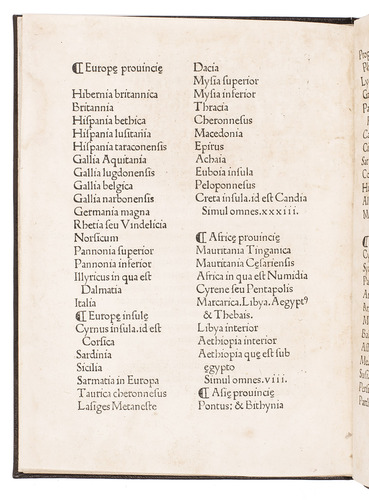 ¶ Europę prouincię
Hibernia britannica
Britannia
Hiſpania bethica
Hiſpania luſitaṅia
Hiſpania taraconenſis
Gallia Aquitania
Gallia lugdonenſis
Gallia belgica
Gallia narbonenſis
Germania magna
Rhetia ſeu Vindelicia
Norſicum
Pannonia ſuperior
Pannonia inferior
Illyricus in qua eſt
Dalmatia
Italia
¶ Europę inſulę
Cyrnus inſula.id eſt
Corſica
Sardinia
Sicilia
Sarmatia in Europa
Taurica cherronneſus
Laſiges Metaneſte
Dacia
Myſia ſuperior
Myſia inferior
Thracia
Cheronneſus
Macedonia
Epirus
Achaia
Euboia inſula
Peloponneſus
Creta inſula.id eſt Candia
Simul omnes.xxxiii.
¶ Africę prouincię
Mauritania Tinganica
Mauritania Ceſarienſis
Africa in qua eſt Numidia
Cyrene ſeu Pentapolis
Marcarica.Libya.Aegyptꝰ
& Thebais.
Libya interior
Aethiopia interior
Aethiopia quę eſt ſub
ęgypto
Simul omnes.viii.
¶ Aſię prouincię
Pontus: & Bithynia